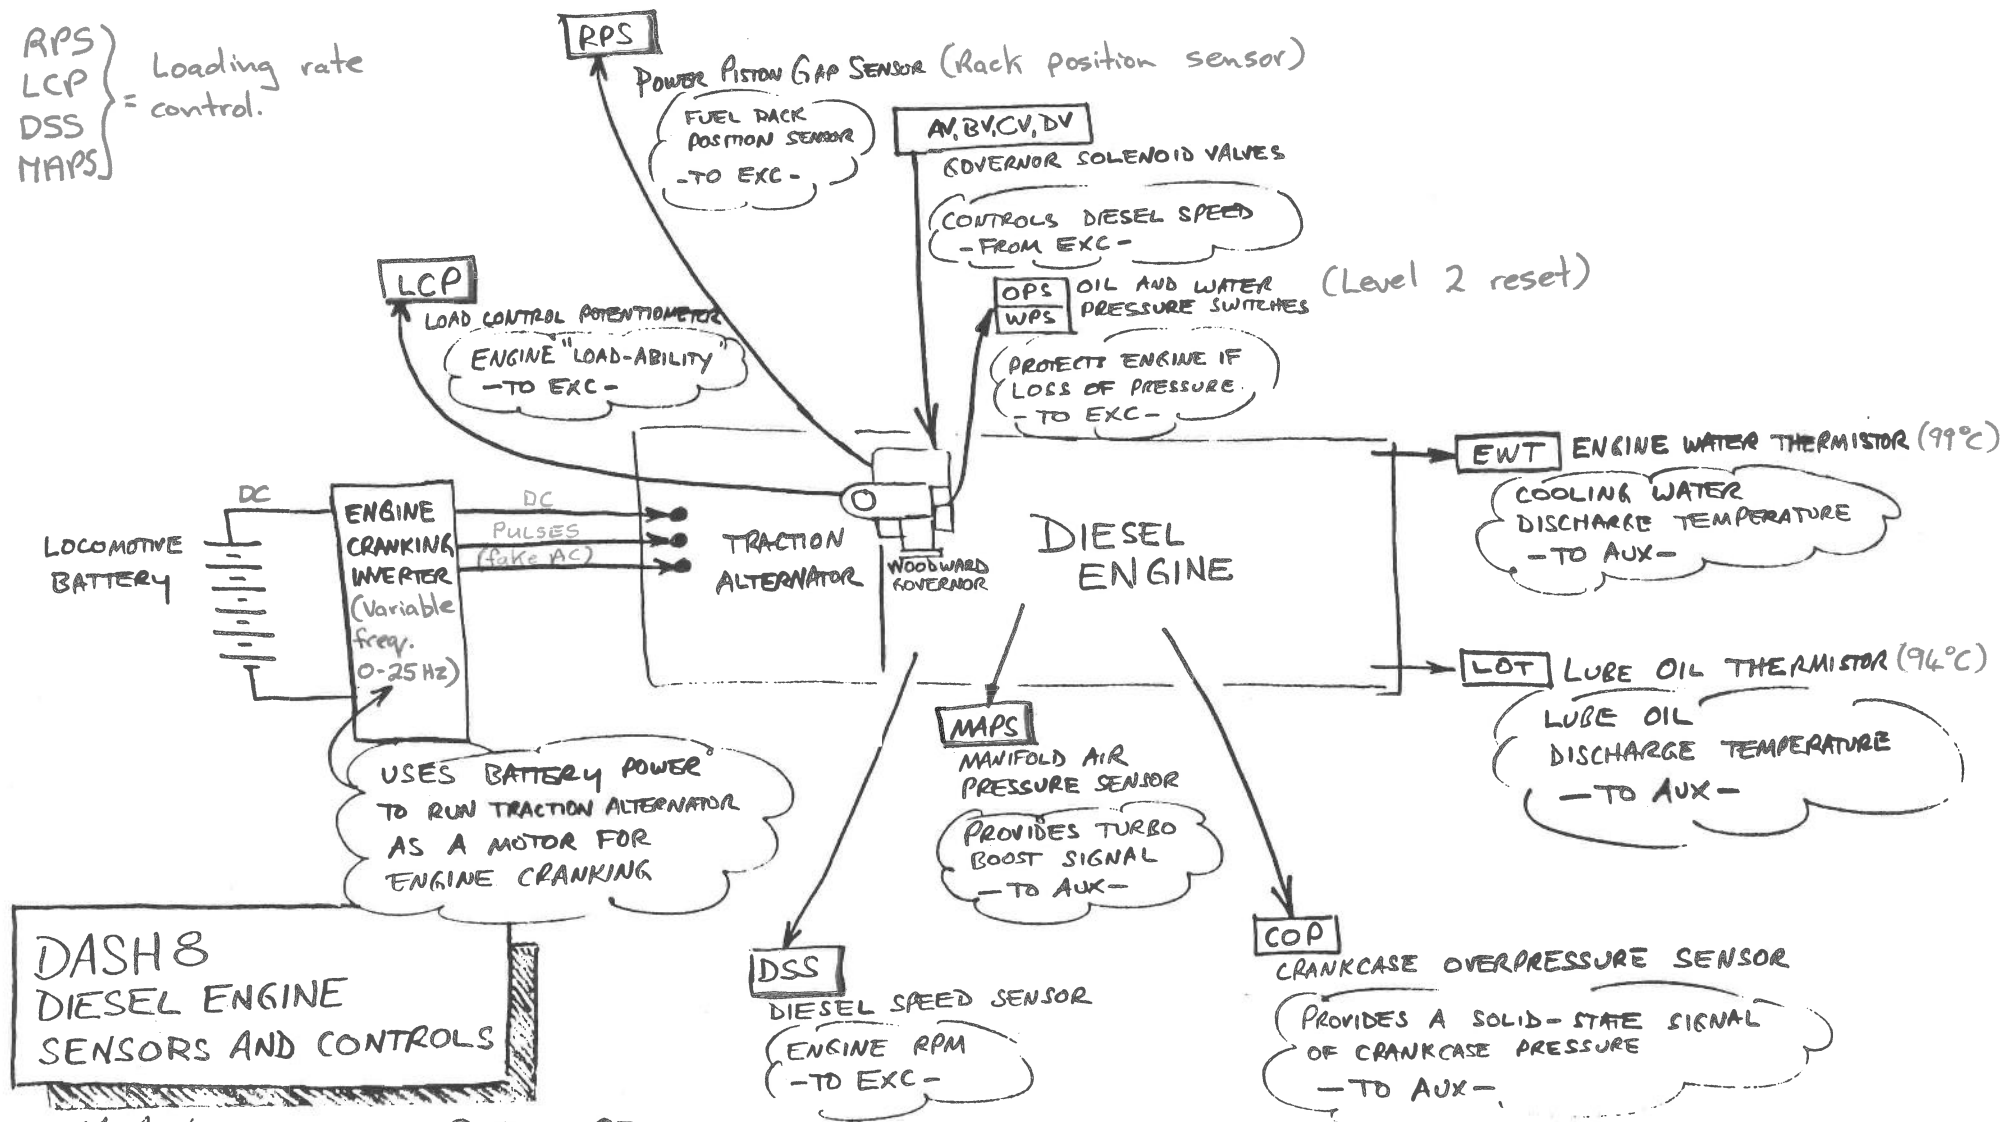 RPS
LCP
DSS
MAPS
= Loading rate
control.
RPS
POWER PISTON GAP SENSOR (Rack position sensor)
FUEL RACK
POSITION SENSOR
-TO EXC-
AV, BV, CV, DV
GOVERNOR SOLENOID VALVES
CONTROLS DIESEL SPEED
-FROM EXC-
LCP
LOAD CONTROL POTENTIOMETER
ENGINE "LOAD-ABILITY"
-TO EXC-
OPS
WPS
OIL AND WATER
PRESSURE SWITCHES
(Level 2 reset)
PROTECTS ENGINE IF
LOSS OF PRESSURE.
-TO EXC-
EWT
ENGINE WATER THERMISTOR (99°C)
COOLING WATER
DISCHARGE TEMPERATURE
-TO AUX-
LOCOMOTIVE
BATTERY
DC
ENGINE
CRANKING
INVERTER
(Variable
freq.
0-25Hz)
DC
PULSES
(fake AC)
TRACTION
ALTERNATOR
WOODWARD
GOVERNOR
DIESEL
ENGINE
LOT
LUBE OIL THERMISTOR (94°C)
LUBE OIL
DISCHARGE TEMPERATURE
-TO AUX-
USES BATTERY POWER
TO RUN TRACTION ALTERNATOR
AS A MOTOR FOR
ENGINE CRANKING
MAPS
MANIFOLD AIR
PRESSURE SENSOR
PROVIDES TURBO
BOOST SIGNAL
-TO AUX-
DSS
DIESEL SPEED SENSOR
ENGINE RPM
-TO EXC-
COP
CRANKCASE OVERPRESSURE SENSOR
PROVIDES A SOLID-STATE SIGNAL
OF CRANKCASE PRESSURE
-TO AUX-
DASH 8
DIESEL ENGINE
SENSORS AND CONTROLS